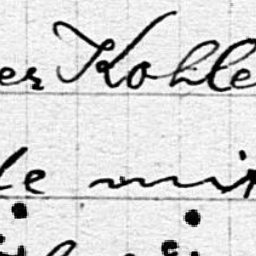 er Kohle
le mit